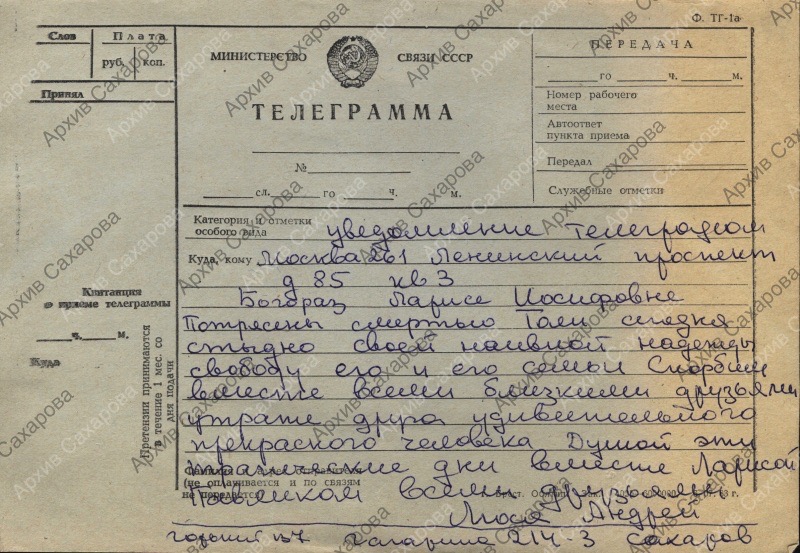 Ф. ТГ-1а
Слов
Плата
руб. коп.
Принял
МИНИСТЕРСТВО СВЯЗИ СССР
ТЕЛЕГРАММА
№
сл. го ч. м.
ПЕРЕДАЧА
го ч. м.
Номер рабочего
места
Автоответ
пункта приема
Передал
Служебные отметки
Категория и отметки
особого вида
уведомление телеграфом
Куда, кому Москва 261 Ленинский проспект
д 85 кв 3
Богораз Ларисе Иосифовне
Потрясены смертью Толи
стыдно своей наивной надежды
свободу его и его семьи Скорбим
вместе всеми близкими друзьями
утрате друга удивительного
прекрасного человека Душой эти
трагические дни вместе Ларисой
Павликом всеми друзьями
Люся Андрей
Горький 137 Гагарина 214 3 Сахаров
(не оплачивается и по связям
не передается)
Квитанция
о приеме телеграммы
ч. м.
Куда
Претензии принимаются
в течение 1 мес. со
дня подачи
Архив Сахарова